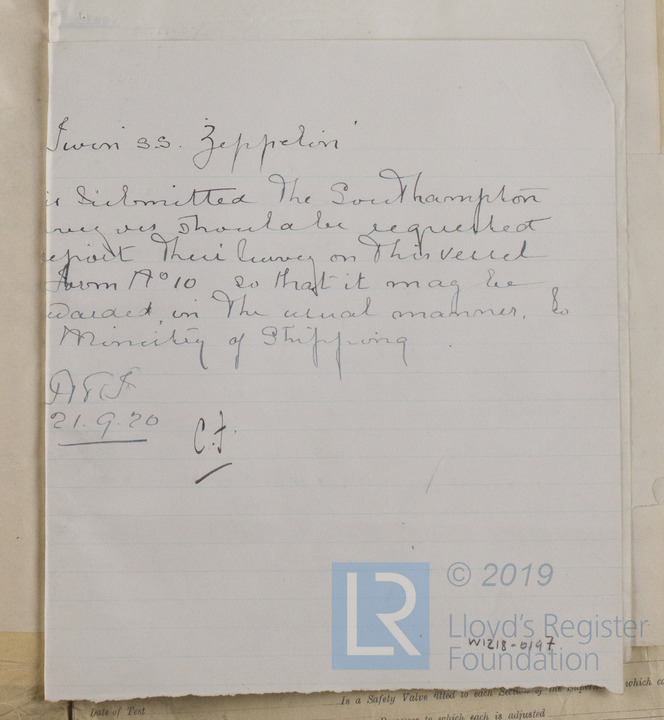 Twin s.s. Zeppelin'
is Submitted The Southampton
veyors should be requested
eport Their Survey on This vessel
Form No 10 so that it may be
warded, in The usual manner, to
Ministry of Shipping.
21.9.20
C.J.
© 2019
LR
Lloyd's Register
Foundation
W1218-0197
Date of Test
Is a Safety Valve fitted to each Section of the Super
which each is adjusted